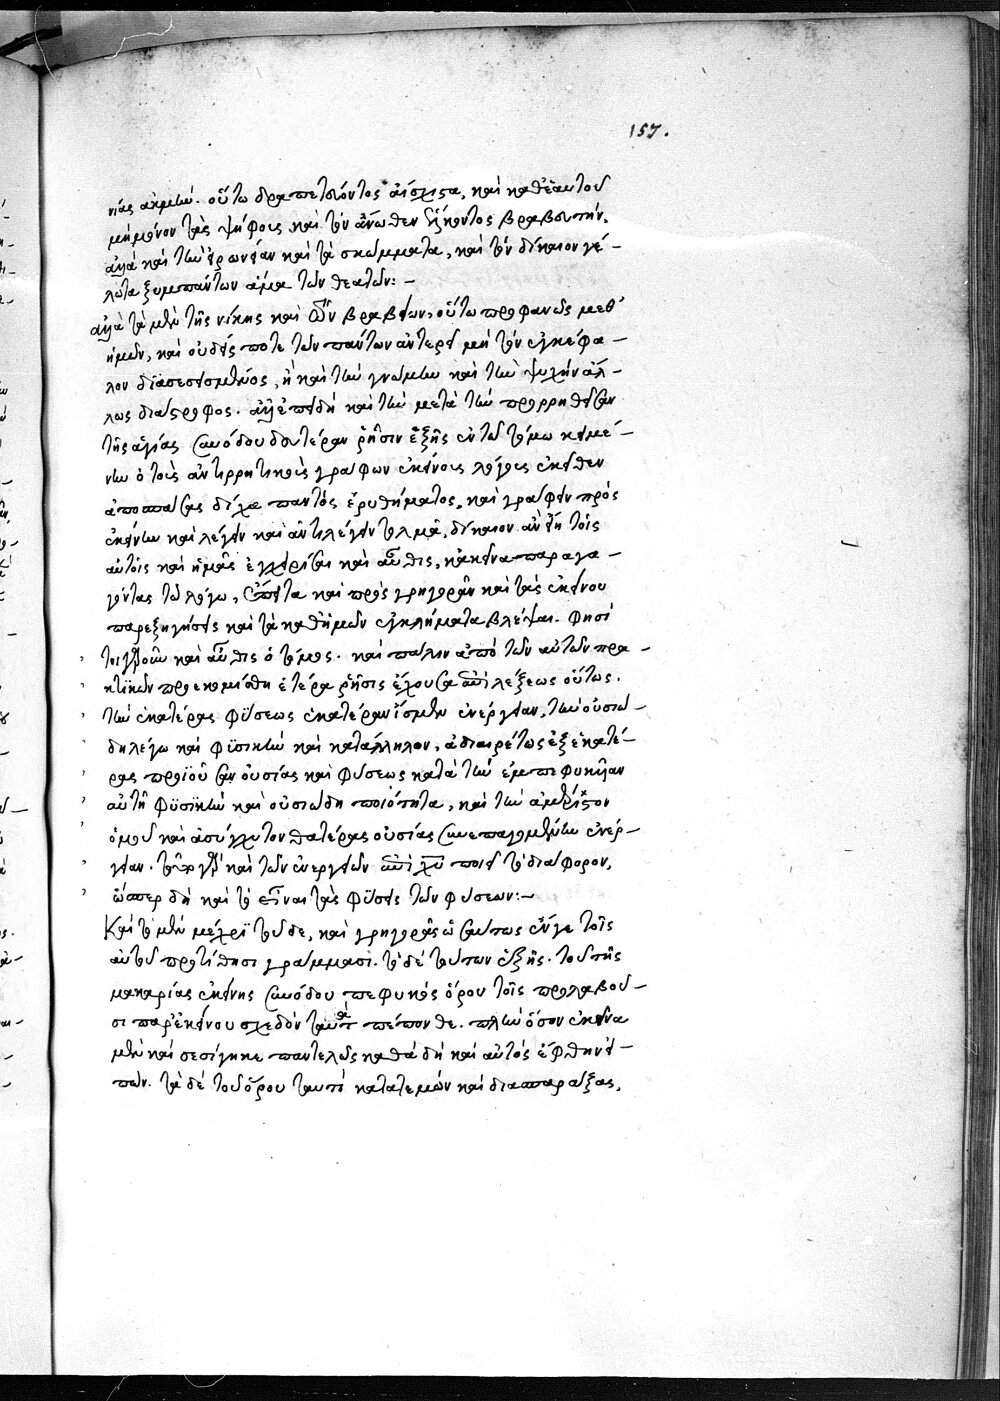 157.
νίας ἀκμὴν. οὕτω δραπετεύοντος αἴσχιστα, καὶ καθ' ἑαυτοῦ
μὴ μόνον τὰς ψήφους καὶ τὸν ἄνωθεν ἥκοντος βραβευτὴν,
ἀλλὰ καὶ τὴν εἰρωνείαν καὶ τὰ σκώμματα, καὶ τὸν δίκαιον γέ-
λωτα ξυμπάντων ἅμα τῶν θεατῶν:-
ἀλλὰ τὰ μὲν τῆς νίκης καὶ τῶν βραβείων, οὕτω προφανῶς μεθ'
ἡμῶν, καὶ οὐδείς ποτε τῶν πάντων ἀντερεῖ μὴ τὸν ἐγκέφα-
λον διασεσεισμένος, ἢ καὶ τὴν γνώμην καὶ τὴν ψυχὴν ἄλ-
λως διάστροφος. ἀλλ' ἐπειδὴ καὶ τὴν μετὰ τὴν προρρηθεῖσαν
τῆς ἁγίας συνόδου δευτέραν ῥῆσιν ἑξῆς ἐν τῷ τόμῳ κειμέ-
νην ὁ τοὺς ἀντιρρητικοὺς γράφων ἐκείνους λόγους ἐκεῖθεν
ἀποσπάσας δίχα παντὸς ἐρυθήματος, καὶ γράφειν πρὸς
ἐκείνην καὶ λέγειν καὶ ἀντιλέγειν τολμᾶ, δίκαιον ἂν εἴη τοῖς
αὐτοῖς καὶ ἡμᾶς ἐγχειρῆσαι καὶ αὖθις, κἀκεῖνα παραγα-
γόντας τῷ λόγῳ, ἔπειτα καὶ πρὸς γρηγορᾶν καὶ τὰς ἐκείνου
παρεξηγήσεις καὶ τὰ καθ' ἡμῶν ἐγκλήματα βλέψαι. Φησὶ
τοιγαροῦν καὶ αὖθις ὁ τόμος. καὶ πάλιν ἀπὸ τῶν αὐτῶν πρα-
κτικῶν προεκομίσθη ἑτέρα ῥῆσις ἔχουσα ἐπὶ λέξεως οὕτως.
τὴν ἑκατέρας φύσεως ἑκατέραν ἴσμεν ἐνέργειαν, τὴν οὐσιώ-
δη λέγω καὶ φυσικὴν καὶ κατάλληλον, ἀδιαιρέτως ἐξ ἑκατέ-
ρας προϊοῦσαν οὐσίας καὶ φύσεως κατὰ τὴν ἐμπεφυκυῖαν
αὐτῇ φυσικὴν καὶ οὐσιώδη ποιότητα, καὶ τὴν ἀμέριστον
ὁμοῦ καὶ ἀσύγχυτον θατέρας οὐσίας συνεπαγομένην ἐνέρ-
γειαν. τοῦτο γὰρ καὶ τῶν ἐνεργειῶν ἐπὶ χῦ ποιεῖ τὸ διάφορον,
ὥσπερ δὴ καὶ τὸ εἶναι τὰς φύσεις τῶν φύσεων:-
Καὶ τὸ μὲν μέχρι τοῦδε, καὶ γρηγορᾶς ὡσαύτως ἔν γε τοῖς
αὐτοῦ προτίθησι γράμμασι. τὸ δὲ τούτων ἑξῆς. τοῦ τῆς
μακαρίας ἐκείνης συνόδου πεφυκὸς ὅρου τοῖς προλαβοῦ-
σι παρ' ἐκείνου σχεδὸν ταυτὰ πέπονθε. πλὴν ὅσον ἐκεῖνα
μὲν καὶ σεσίγηκε παντελῶς καθὰ δὴ καὶ αὐτὸς ἔφθην εἰ-
πών. τὰ δὲ τοῦ ὅρου ταυτὶ κατατεμὼν καὶ διασπαράξας,